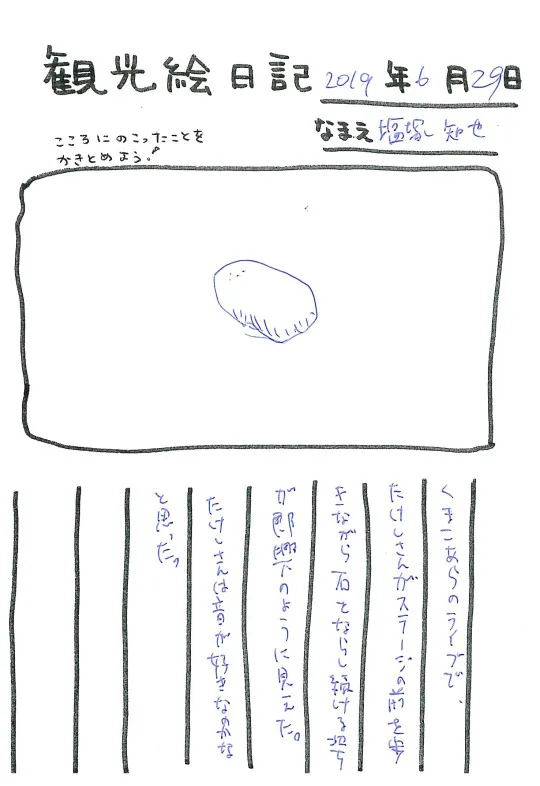 観光絵日記 2019年6月29日
なまえ 塩塚 知也
こころにのこったことを
かきとめよう!
くまこあらのライブで、
たけしさんがステージの前を歩
きながら石をならし続ける姿
がのように見えた。
たけしさんは音が好きなのかな
と思った。